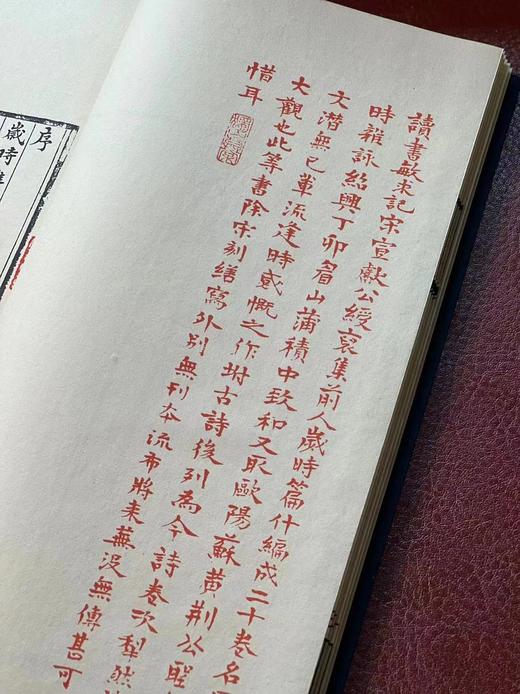 讀書敏求記宋宣獻公綬裒集前人歲時篇什編成二十卷名
時雜詠紹興丁卯眉山蒲積中致和又取歐陽蘇黃荆公
文潛無已軰流逢時感慨之作坿古詩後列為今詩卷次犁然
大觀也此等書除宋刻繕寫外別無刊本流布將来蕪沒無傳甚可
惜耳
序
歲時